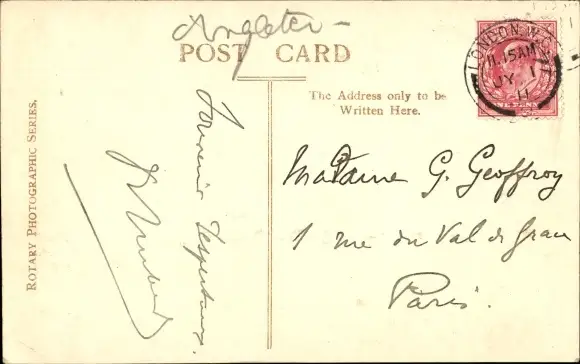 POST CARD
The Address only to be
Written Here.
LONDON. W.C.
11.15AM
JY 1
11
ONE PENNY
Madame G. Geoffroy
1 rue du Val de Grace
Paris.
Souvenir
ROTARY PHOTOGRAPHIC SERIES.